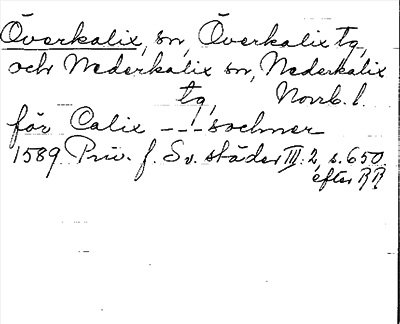 Överkalix, sn, Överkalix tg,
och Nederkalix sn, Nederkalix
tg, Norrb. l.
för Calix - - - sochner
1589 Priv. f. Sv. städer III: 2, s. 650.
efter RR